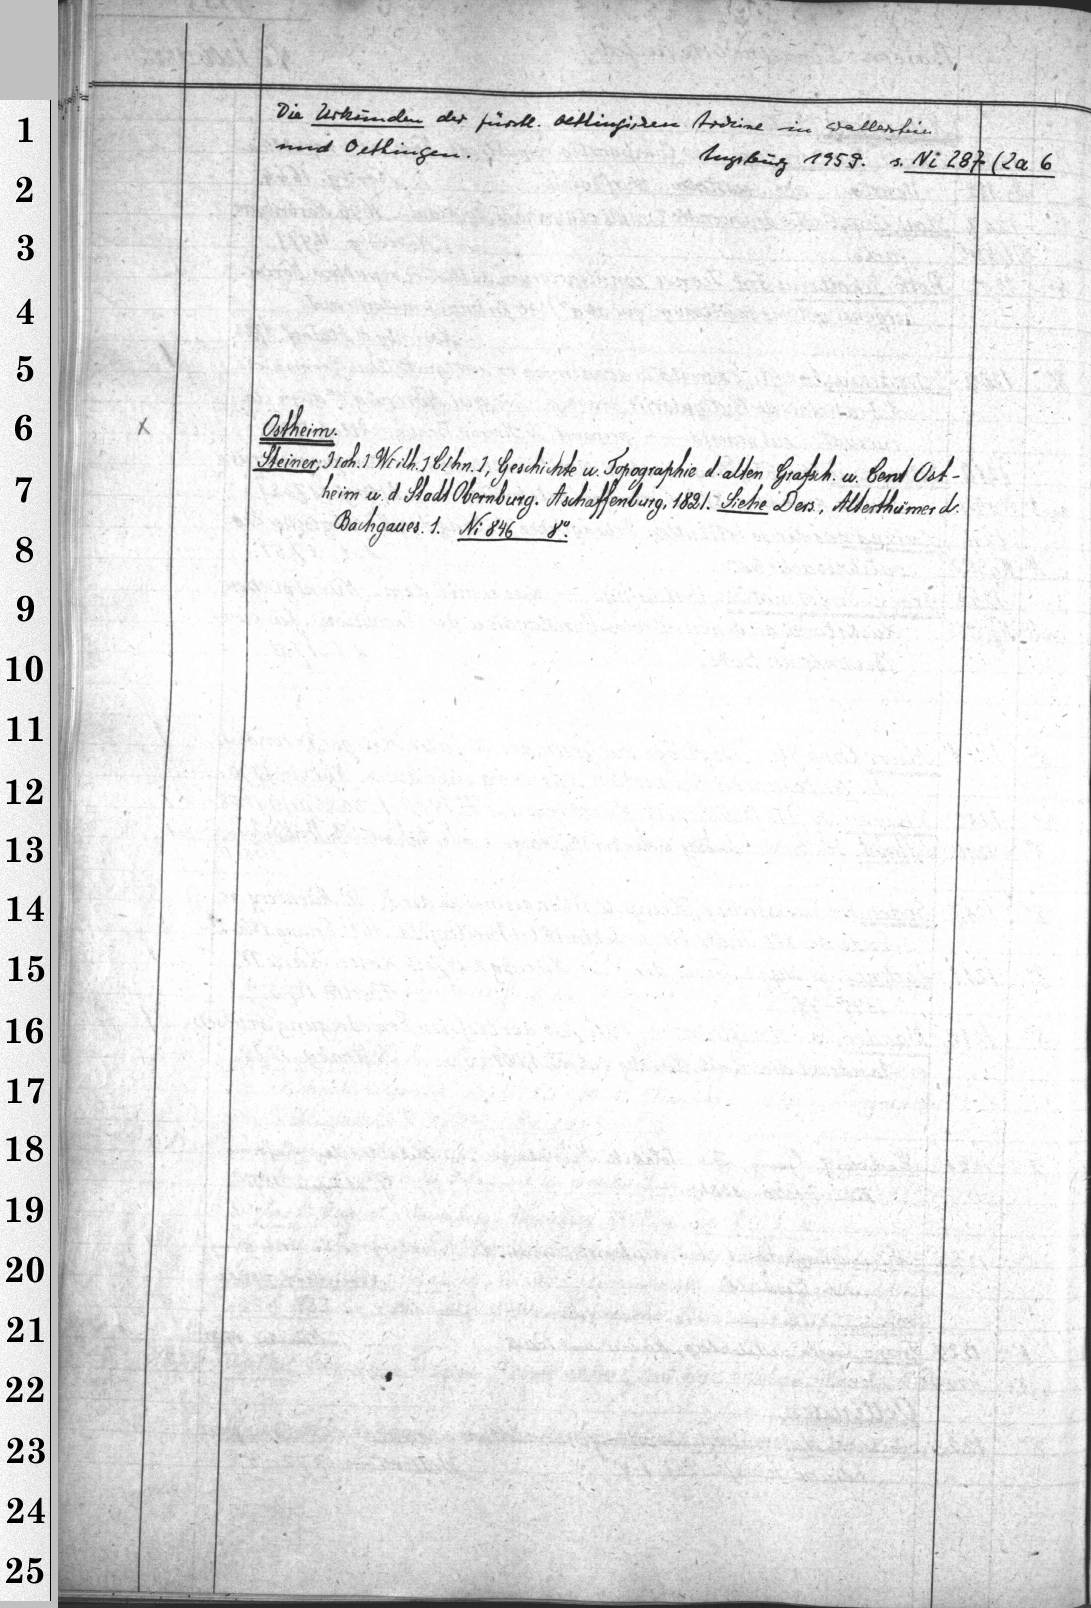 Die Urkunden der fürstl. oettingischen Archive in Wallerstein
und Oettingen. Augsburg 1959. s. Ni 287 (2a 6
x
Ostheim.
Steiner, J[oh.] W[ilh.] C[hn.], Geschichte u. Topographie d. alten Grafsch. u. Cent Ost-
heim u. d. Stadt Obernburg. Aschaffenburg, 1821. Siehe Ders., Alterthümer d.
Bachgaues. 1. Ni 846 8°.
1
2
3
4
5
6
7
8
9
10
11
12
13
14
15
16
17
18
19
20
21
22
23
24
25